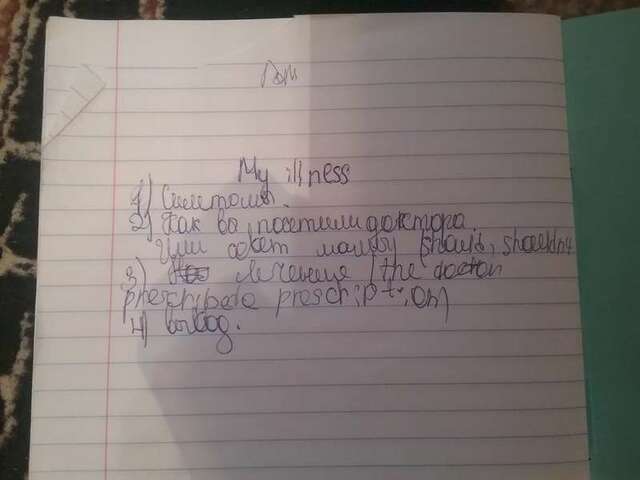 Дом
My illness
1) Симптомы.
2) Как вы посетили доктора.
Или совет мамы should, shouldn't
3) лечение (the doctor
prescribe prescription)
4) вывод.